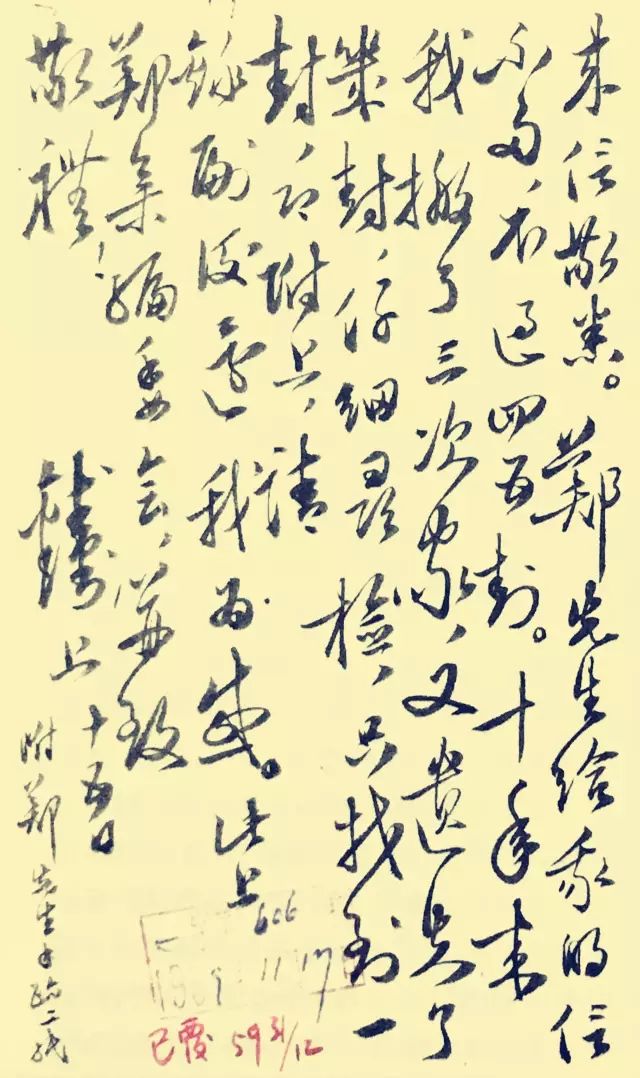 来信敬悉。郑先生给我的信
不多，不过四五封。十年来
我搬了三次家，又遗失了
几封，仔细寻检，只找到一
封，即附上，请
录副后还我为感。此上
郑集编委会，并致
敬礼！
锺书上 十五日
附郑先生手迹二纸
606
11 17
已覆 59 31/12